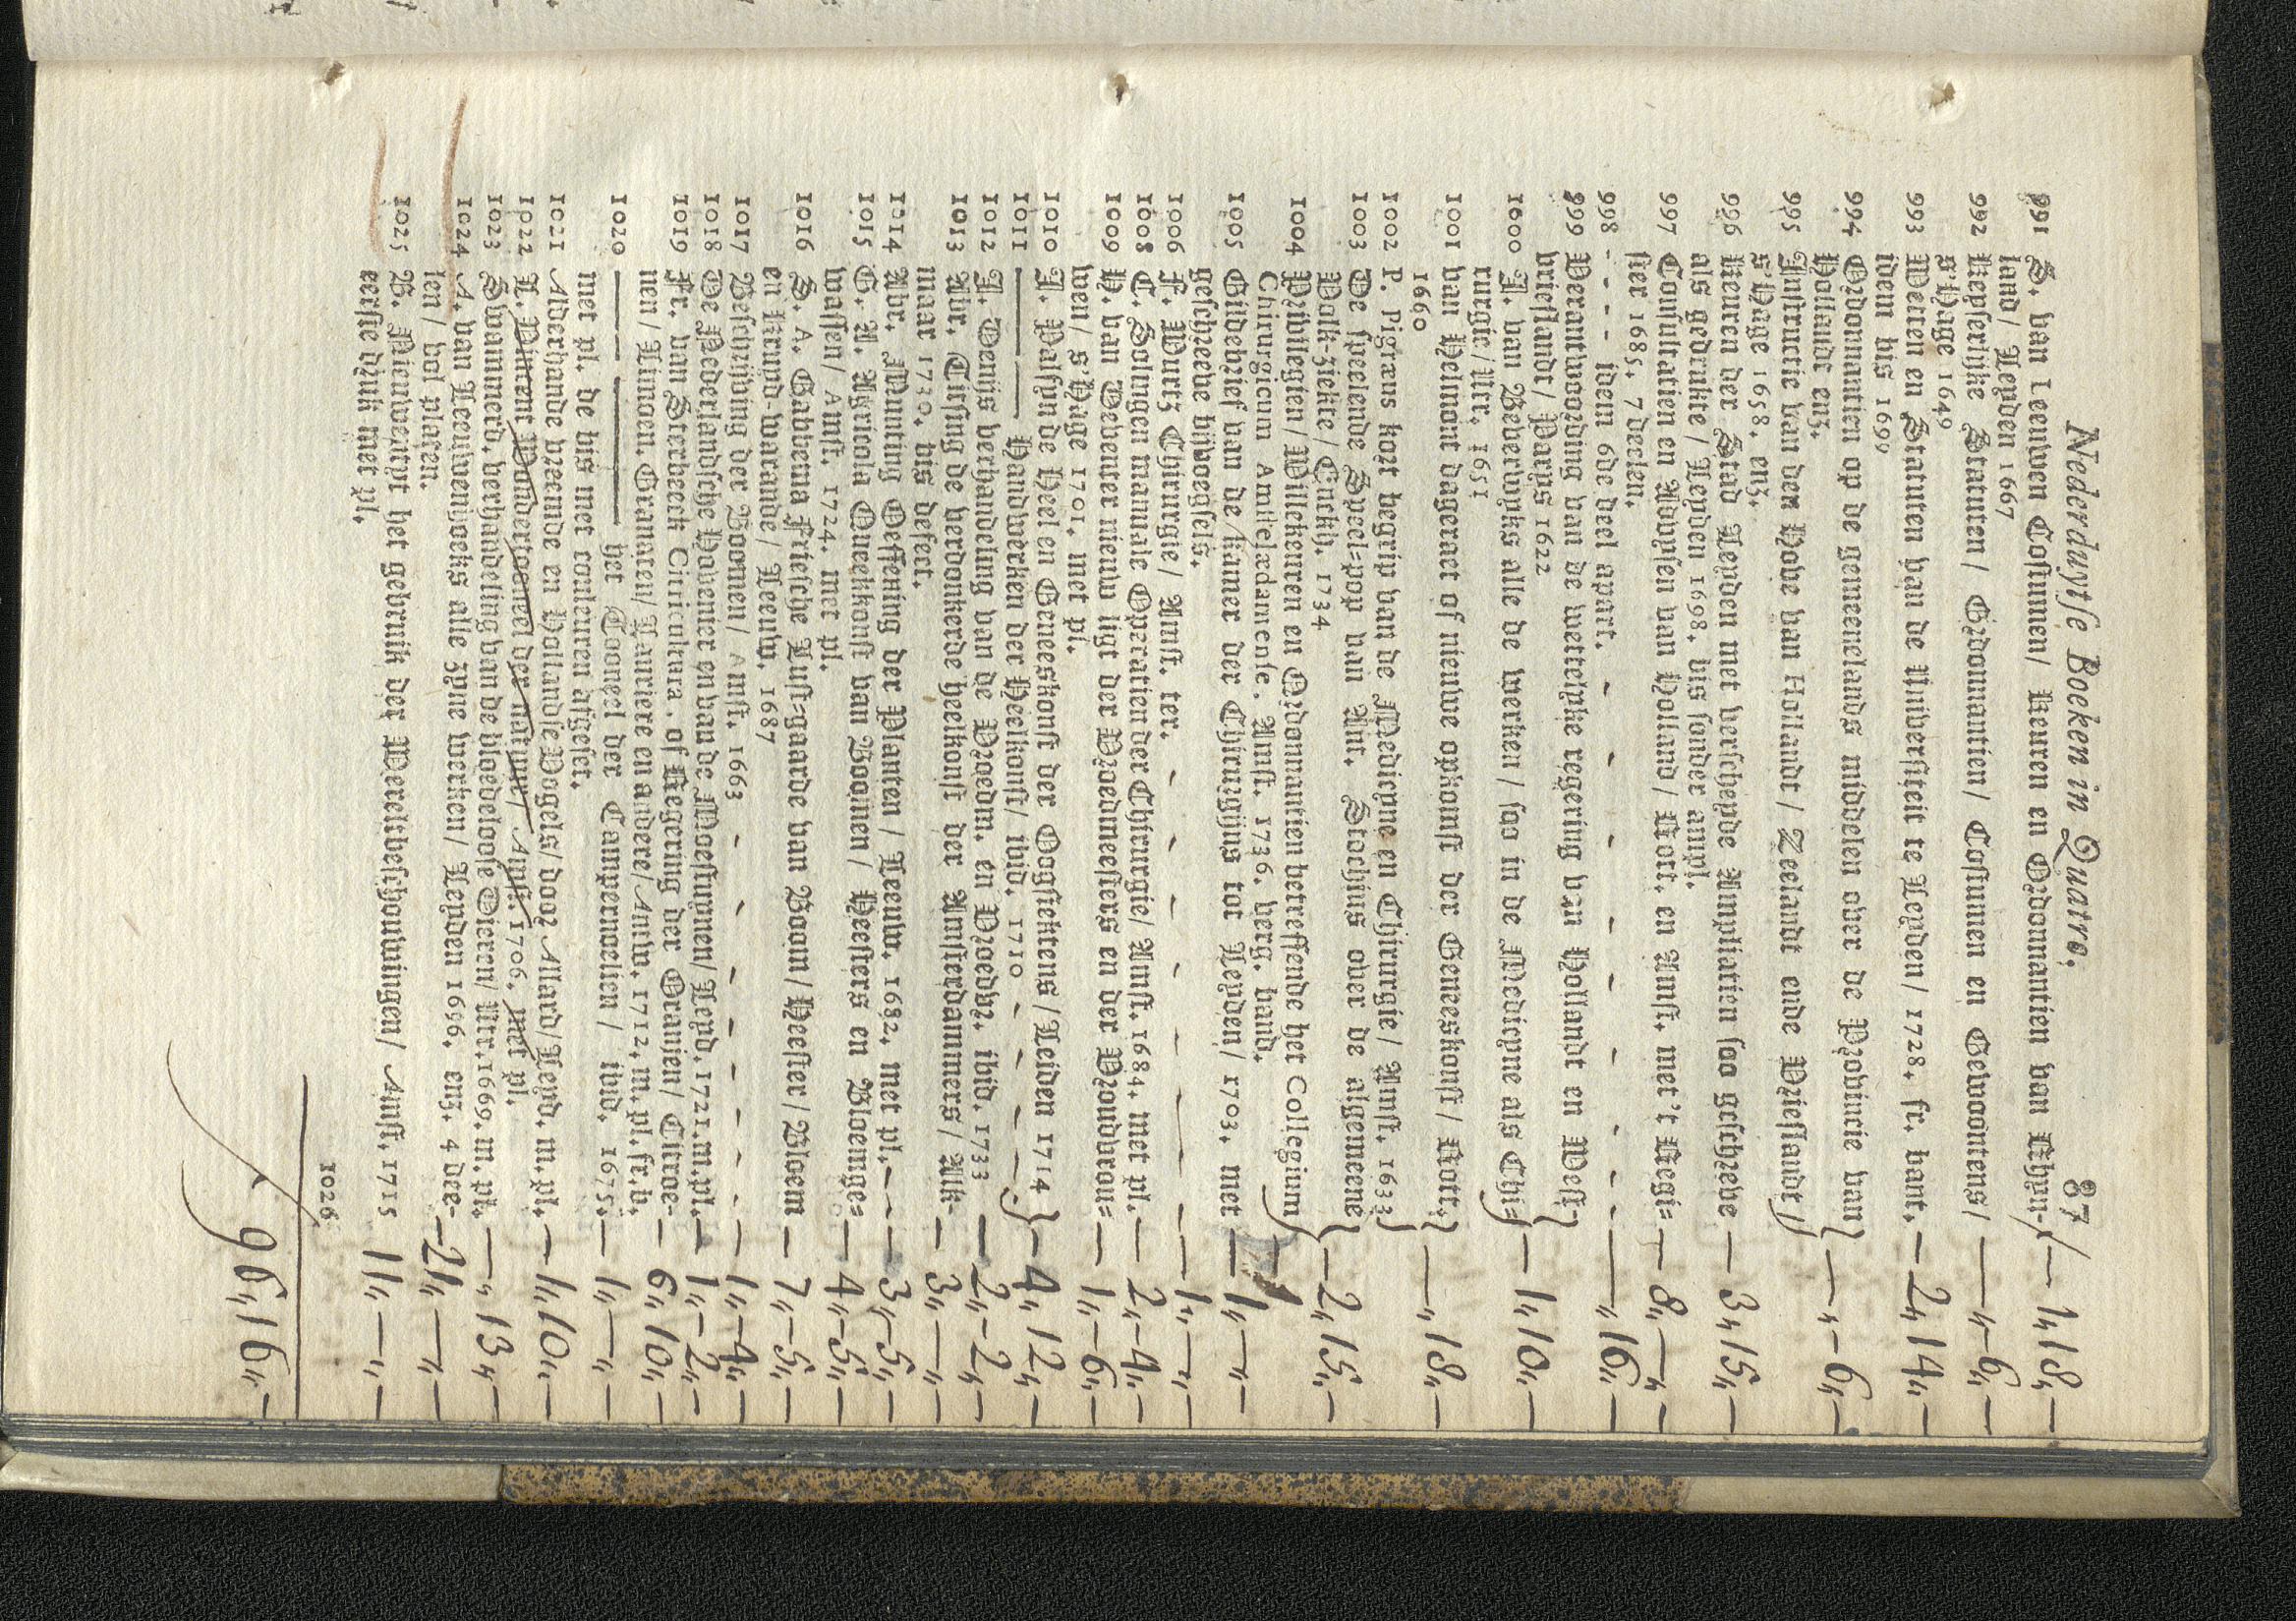 Nederduytse Boeken in Quarto. 87
991 S. van Leeuwen Costumen/ Keuren en Ordonnantien van Rhyn- — 1„18„—
land/ Leyden 1667
992 Keyserlijke Statuten/ Ordonnantien/ Costumen en Gewoontens/ — „—6„—
s'Hage 1649
993 Wetten en Statuten van de Universiteit te Leyden/ 1728. fr. bant. — 2„14„—
idem bis 1692
994 Ordonnantien op de gemeenelands middelen over de Provincie van
Hollandt enz. — „—6„—
995 Instructie van den Hove van Hollandt/ Zeelandt ende Vrieslandt/
s'Hage 1658. enz.
996 Keuren der Stad Leyden met verscheyde Ampliatien soo geschreve — 3„15„—
als gedrukte/ Leyden 1698. bis sonder ampl.
997 Consultatien en Advysen van Holland/ Rott. en Amst. met 't Regi= — 8„—„—
ster 1685. 7 deelen.
998 - - - - idem 6de deel apart. — „16„—
999 Verantwoording van de wettelyke regering van Hollandt en West-
vrieslandt/ Parys 1622
1000 J. van Beverwyks alle de werken/ soo in de Medicyne als Chi= — 1„10„—
rurgie/ Utr. 1651
1001 van Helmont dageraet of nieuwe opkomst der Geneeskonst/ Rott. — „18„—
1660
1002 P. Pigræus kort begrip van de Medicyne en Chirurgie/ Amst. 1633
1003 De speelende Speel=pop van Ant. Stochius over de algemeene — 2„15„—
Volk-ziekte/ Enckh. 1734
1004 Privilegien/ Willekeuren en Ordonnantien betreffende het Collegium
Chirurgicum Amstelædamense. Amst. 1736. berg. band.
1005 Gildebrief van de kamer der Chirurgijns tot Leyden/ 1703. met — 1„—„—
geschreve bijvoegsels.
1006 F. Wurtz Chirurgie/ Amst. ter. — 1„—„—
1008 C. Solingen manuale Operatien der Chirurgie/ Amst. 1684. met pl. — 2„—4„—
1009 H. van Deventer nieuw ligt der Vroedmeesters en der Vroedvrou= — 1„—6„—
wen/ s'Hage 1701. met pl.
1010 J. Palfyn de Heel en Geneeskonst der Oogsiektens/ Leiden 1714 — 4„12„—
1011 ——— Handwerken der Heelkonst/ ibid. 1710
1012 J. Denijs verhandeling van de Vroedm. en Vroedvr. ibid. 1733 — 2„—2„—
1013 Abr. Titsing de verdonkerde heelkonst der Amsterdammers/ Alk- — 3„—„—
maar 1730. bis defect.
1014 Abr. Munting Oeffening der Planten/ Leeuw. 1682. met pl. — 3„—5„—
1015 G. A. Agricola Queekkonst van Boomen/ Heesters en Bloemge= — 4„—5„—
wassen/ Amst. 1724. met pl.
1016 S. A. Gabbema Friesche Lust=gaarde van Boom/ Heester/ Bloem — 7„—5„—
en Kruyd-waranda/ Leeuw. 1687
1017 Beschrijving der Boomen/ Amst. 1663 — 1„—4„—
1018 De Nederlandsche Hovenier en van de Moestuynen/ Leyd. 1721. m. pl. — 1„—2„—
1019 Fr. van Sterbeeck Citricultura, of Regering der Oranien/ Citroe- — 6„10„—
nen/ Limoen. Granaten/ Laurieren en andere/ Antw. 1712. m. pl. fr. b.
1020 ——— ——— het Tooneel der Campernoelien/ ibid. 1675. — 1„—„—
met pl. de bis met couleuren affgeset.
1021 Alderhande vreemde en Hollandse Vogels/ door Allard/ Leyd. m. pl. — 1„10„—
1022 L. Vincent Wondertooneel der natuur/ Amst. 1706. met pl.
1023 Swammerd. verhandeling van de bloedeloose Dieren/ Utr. 1669. m. pl. — „13„—
1024 A. van Leeuwenhoeks alle zyne werken/ Leyden 1696. enz. 4 dee- — 21„—„—
len/ vol platen.
1025 B. Nieuwentyt het gebruik der Wereltbeschouwingen/ Amst. 1715 — 11„—„—
eerste druk met pl.
1026
96„16„—